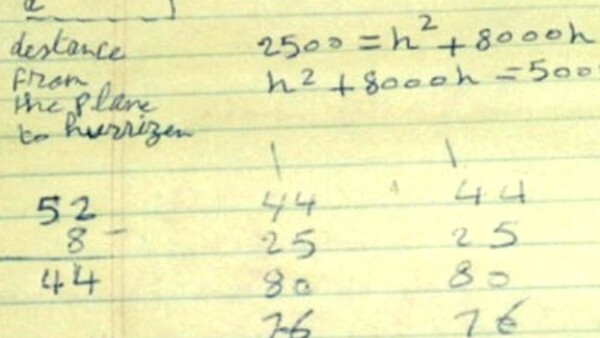 distance
from
the plane
to hurrizen
2500 = h² + 8000h
h² + 8000h = 500
52
8 -
44
44
25
80
76
44
25
80
76